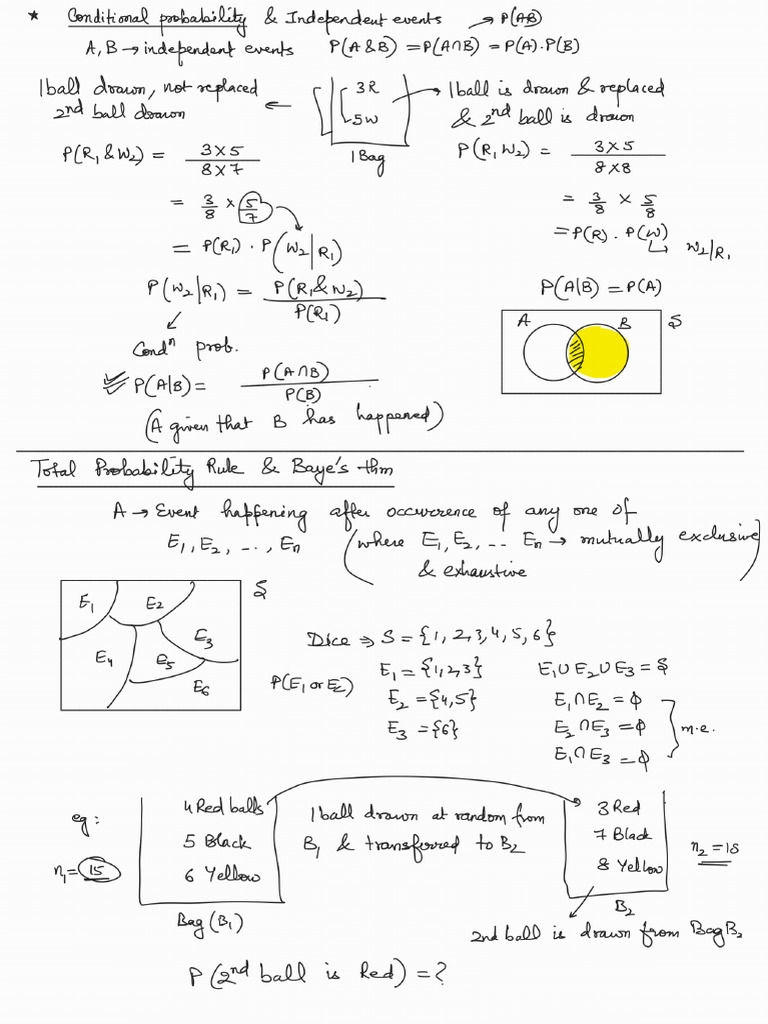 * Conditional probability & Independent events → P(AB)
A, B → independent events P(A & B) = P(A∩B) = P(A).P(B)
1 ball drawn, not replaced
2nd ball drawn
←
3R
5W
1 Bag
→ 1 ball is drawn & replaced
& 2nd ball is drawn
P(R₁ & W₂) = 3×5 / 8×7
= 3/8 × 5/7
= P(R₁) . P(W₂|R₁)
P(W₂|R₁) = P(R₁ & W₂) / P(R₁)
Condⁿ prob.
P(A|B) = P(A∩B) / P(B)
(A given that B has happened)
P(R₁ W₂) = 3×5 / 8×8
= 3/8 × 5/8
= P(R) . P(W)
W₂|R₁
P(A|B) = P(A)
A B S
Total Probability Rule & Baye's thm
A → Event happening after occurrence of any one of
E₁, E₂, ..., Eₙ (where E₁, E₂, ... Eₙ → mutually exclusive
& exhaustive)
E₁ E₂ E₃ E₄ E₅ E₆ S
Dice ⇒ S = {1, 2, 3, 4, 5, 6}
P(E₁ or E₂)
E₁ = {1,2,3}
E₂ = {4,5}
E₃ = {6}
E₁∪E₂∪E₃ = S
E₁∩E₂ = ϕ
E₂∩E₃ = ϕ
E₁∩E₃ = ϕ
m.e.
eg:
n₁ = 15
4 Red balls
5 Black
6 Yellow
Bag (B₁)
1 ball drawn at random from
B₁ & transferred to B₂
3 Red
7 Black
8 Yellow
B₂
n₂ = 18
2nd ball is drawn from Bag B₂
P(2nd ball is Red) = ?